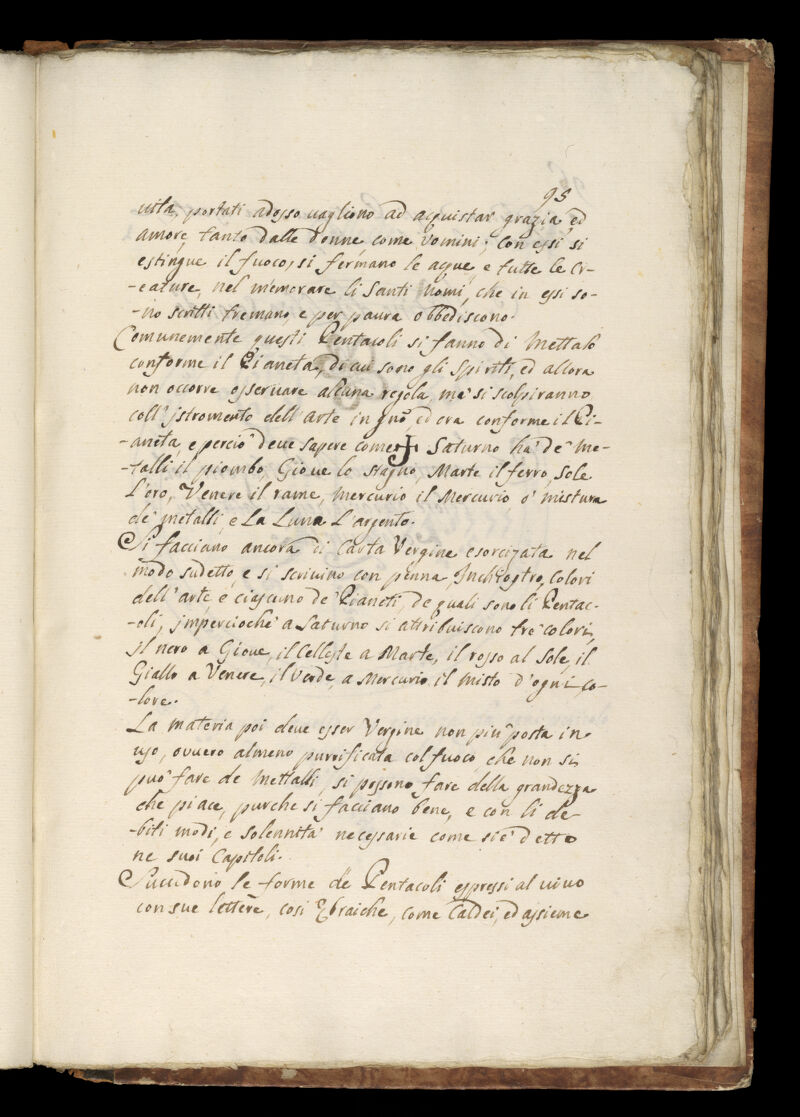 95
uità, portati adosso uagliono ad aquistar grazia, ed
amore, tanto dalle donne come Vomini; Con essi si
estingue il fuoco, si fermano le aque, e tutte le cr-
-eature, nel memorare li Santi Nomi, che in essi so-
-no scritti tremano, e per paura obbediscono.
Comunemente questi Pentacoli si fanno di Mettalo
conforme il Pianeta, di cui sono gli Spiriti, ed allora
non occorre osseruare alcuna regola, ma' si scolpiranno
coll'Istromento dell'Arte in gno, ed ora conforme il Pi-
-aneta, e perciò deue sapere come Saturno ha' de' Me-
-talli il piombo, Gioue lo stagno, Marte il ferro, Sole
L'oro, Venere il rame, Mercurio il Mercurio o' mistura
de' metalli, e La Luna L'argento.
Si facciano ancora di Carta Vergine esorcizata nel
modo sudetto, e si scriuino con penna, Inchiostro, Colori
dell'arte, e ciascuno de' Pianeti, de quali sono li Pentac-
-oli, impercioche a Saturno si attribuiscono tre colori,
il nero a Gioue, il Celleste a Marte, il rosso al Sole, il
Giallo a Venere, il Verde, a Mercurio il misto d'ogni co-
-lore.
La materia poi deue esser Vergine non più posta in
uso, ouuero almeno purrificata col fuoco, che non si
può fare de Mettalli, si possono fare della grandezza
che piace, purche si facciano bene, e con li de-
-biti modi, e solennità necessarie come si è detto
ne suoi Capitoli.
Succedono le forme de' Pentacoli espressi al uiuo
con sue lettere, cosi Ebraiche, come Caldei, ed assieme